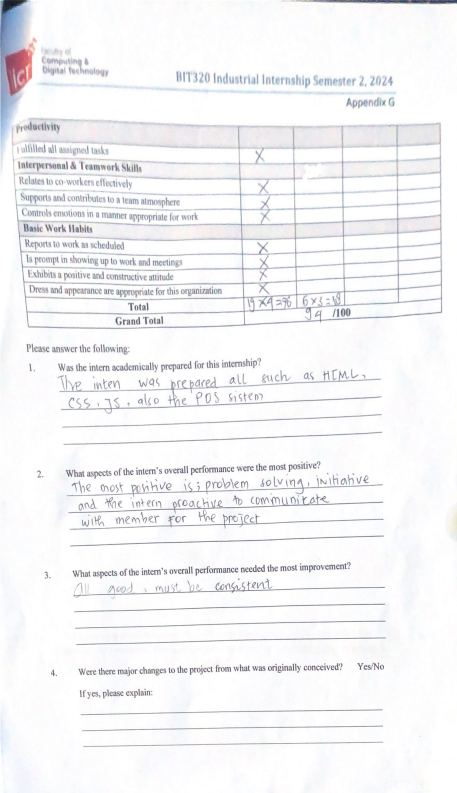 Faculty of
Computing &
Digital Technology
icr
BIT320 Industrial Internship Semester 2, 2024
Appendix G
Productivity
Fulfilled all assigned tasks X
Interpersonal & Teamwork Skills
Relates to co-workers effectively X
Supports and contributes to a team atmosphere X
Controls emotions in a manner appropriate for work X
Basic Work Habits
Reports to work as scheduled X
Is prompt in showing up to work and meetings X
Exhibits a positive and constructive attitude X
Dress and appearance are appropriate for this organization X
Total 19 x 4 = 76 6 x 3 = 18
Grand Total 94 /100
Please answer the following:
1. Was the intern academically prepared for this internship?
The inten was prepared all such as HTML,
CSS, JS, also the POS sistem
2. What aspects of the intern's overall performance were the most positive?
The most positive is; problem solving, initiative
and the intern proactive to communicate
with member for the project
3. What aspects of the intern's overall performance needed the most improvement?
All good, must be consistent
4. Were there major changes to the project from what was originally conceived? Yes/No
If yes, please explain: